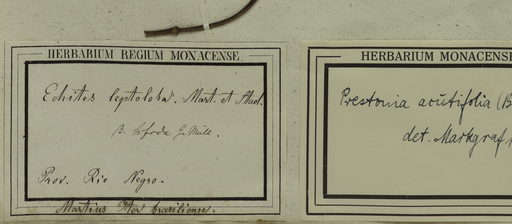 HERBARIUM REGIUM MONACENSE.
Echites leptoloba. Mart. et Stad.
β. J. Müll.
Prov. Rio Negro.
Martius Iter brasiliense.
HERBARIUM MONACENS
Prestonia acutifolia (B
det. Markgraf